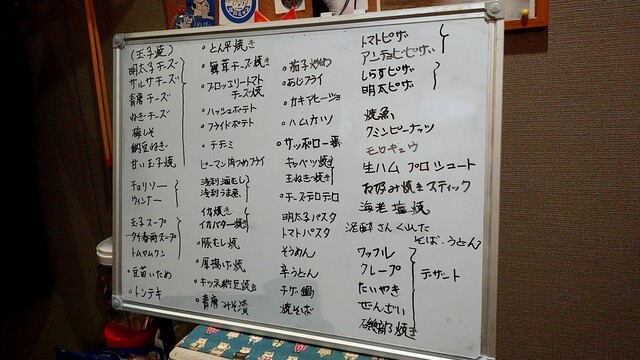 (玉子焼)
明太子チーズ
サルサチーズ
青唐チーズ
ねぎチーズ
梅しそ
納豆ねぎ
甘い玉子焼
チョリソー
ウィンナー
玉子スープ
タイ春雨スープ
トムヤムクン
豆苗いため
トンテキ
とん平焼き
舞茸チーズ焼き
ブロッコリートマト
チーズ焼
ハッシュポテト
フライドポテト
チヂミ
ピーマン肉づめフライ
浅利酒むし
浅利うま煮
イカ焼き
イカバター焼き
豚むし焼
厚揚げ焼
キツネ納豆焼き
青唐みそ漬
茄子炒め
あじフライ
カキアヒージョ
ハムカツ
サッポロ一番
キャベツ焼き
玉ねぎ焼き
チーズテロテロ
明太子パスタ
トマトパスタ
そうめん
辛うどん
チゲ鍋
焼そば
トマトピザ
アンチョビピザ
しらすピザ
明太ピザ
焼魚
クミンピーナッツ
モロキュウ
生ハム プロシュート
お好み焼きスティック
海老塩焼
泥酔さんぐしてた
そば、うどん
ワッフル
クレープ
たいやき
ぜんざい
デザート